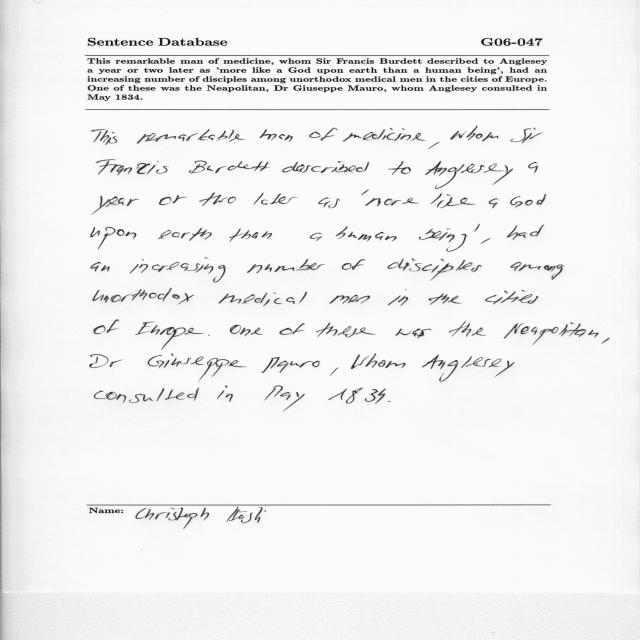 Sentence Database G06-047
This remarkable man of medicine, whom Sir Francis Burdett described to Anglesey
a year or two later as 'more like a God upon earth than a human being', had an
increasing number of disciples among unorthodox medical men in the cities of Europe.
One of these was the Neapolitan, Dr Giuseppe Mauro, whom Anglesey consulted in
May 1834.
This remarkable man of medicine, whom Sir
Francis Burdett described to Anglesey a
year or two later as 'more like a God
upon earth than a human being', had
an increasing number of disciples among
unorthodox medical men in the cities
of Europe. One of these was the Neapolitan,
Dr Giuseppe Mauro, whom Anglesey
consulted in May 1834.
Name: Christoph